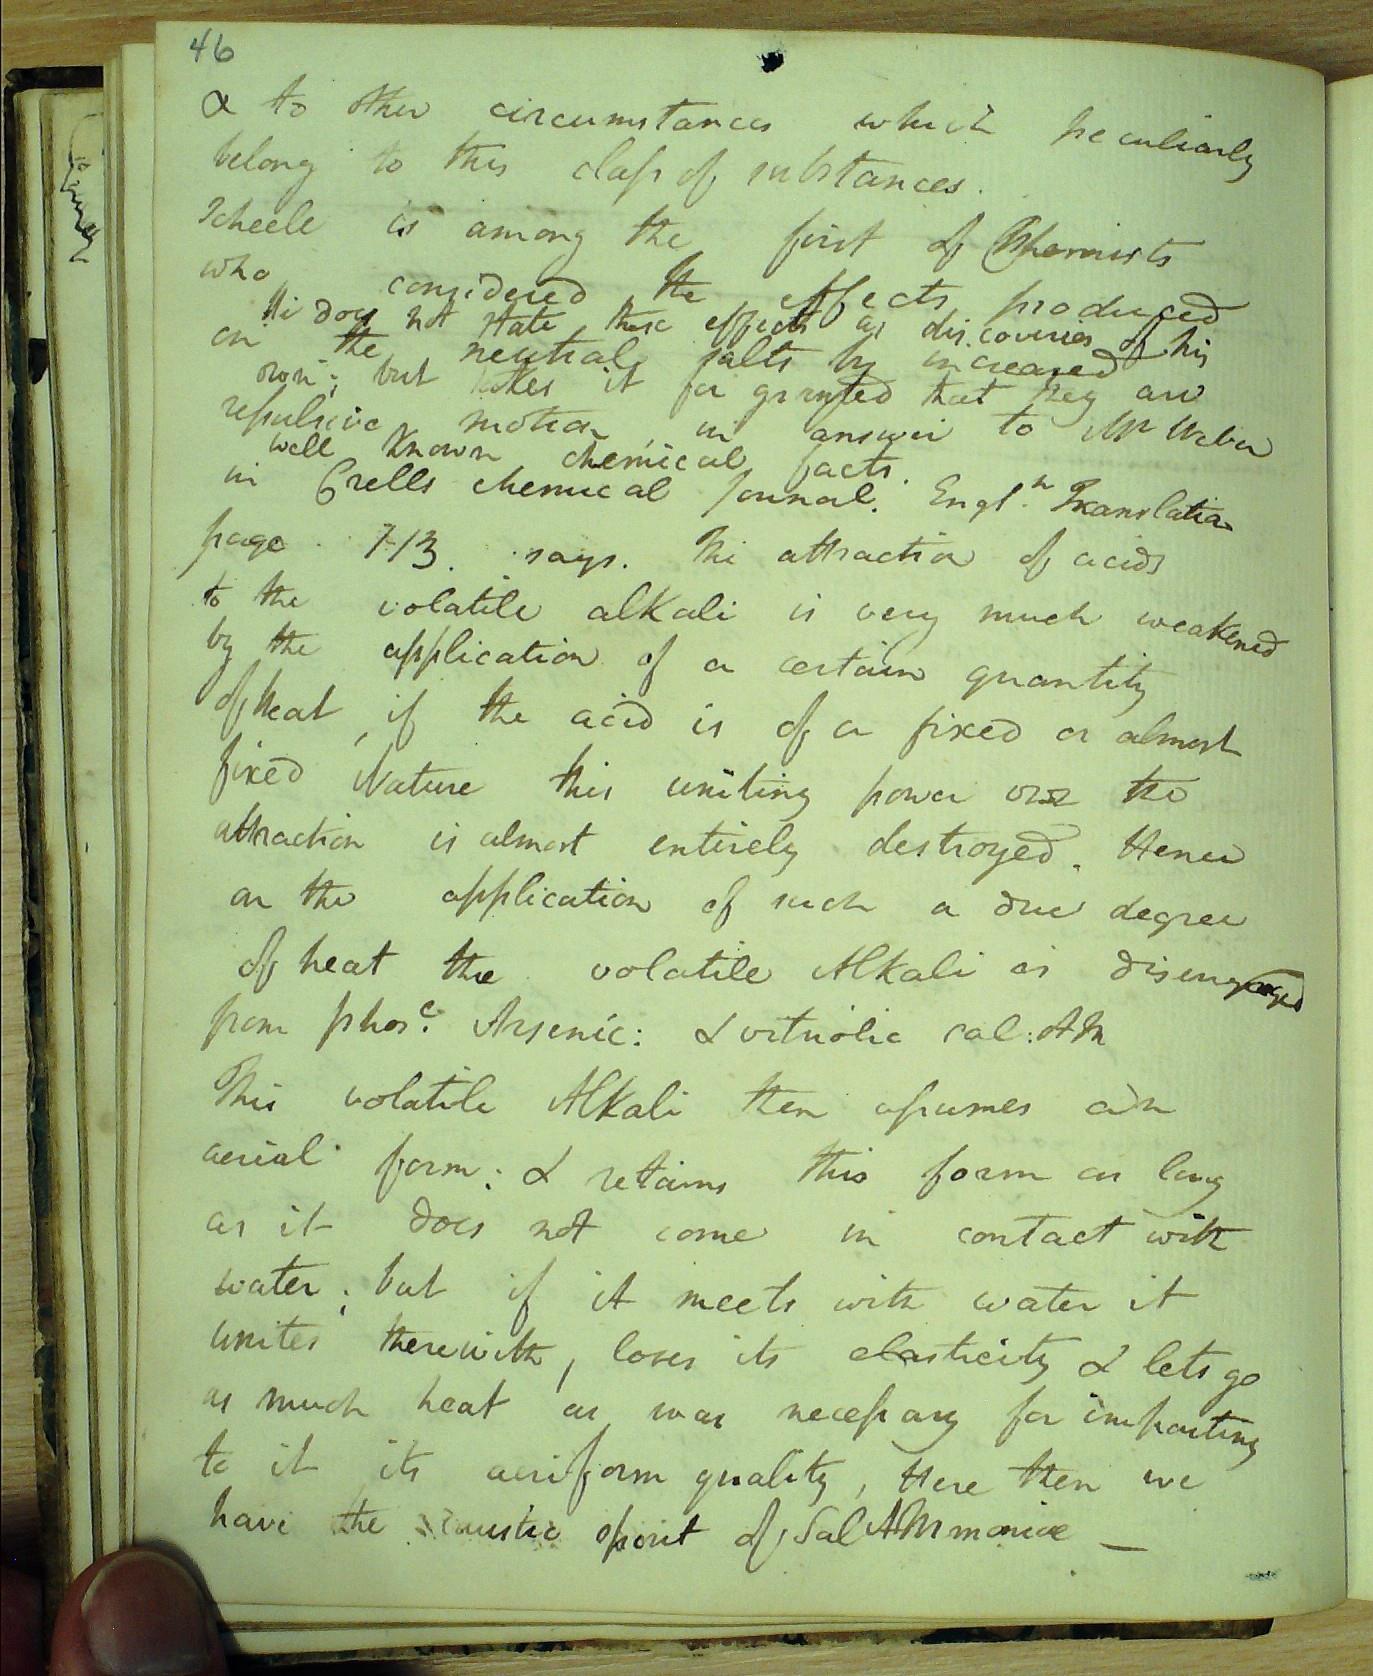 46
& to other circumstances which peculiarly
belong to this class of substances.
Scheele is among the first of Chemists
who considered the effects produced
He does not state these effects as discoveries of his
on the neutral salts by increased
own; but takes it for granted that they are
repulsive motion, in answer to Mr Weber
well known chemical facts.
in Crells chemical Journal. Engl.n Translation
page. 713. says. The attraction of acids
to the volatile alkali is very much weakened
by the application of a certain quantity
of heat, if the acid is of a fixed or almost
fixed Nature this uniting power or the
attraction is almost entirely destroyed. Hence
on the application of such a due degree
of heat the volatile Alkali is disengaged
from phos.c Arsenic: & vitriolic sal: AM
This volatile Alkali then assumes an
aerial form: & retains this form as long
as it does not come in contact with
water; but if it meets with water it
unites therewith, loses its elasticity & lets go
as much heat as was necessary for imparting
to it its aeriform quality, Here then we
have the caustic spirit of Sal AMmoniac —